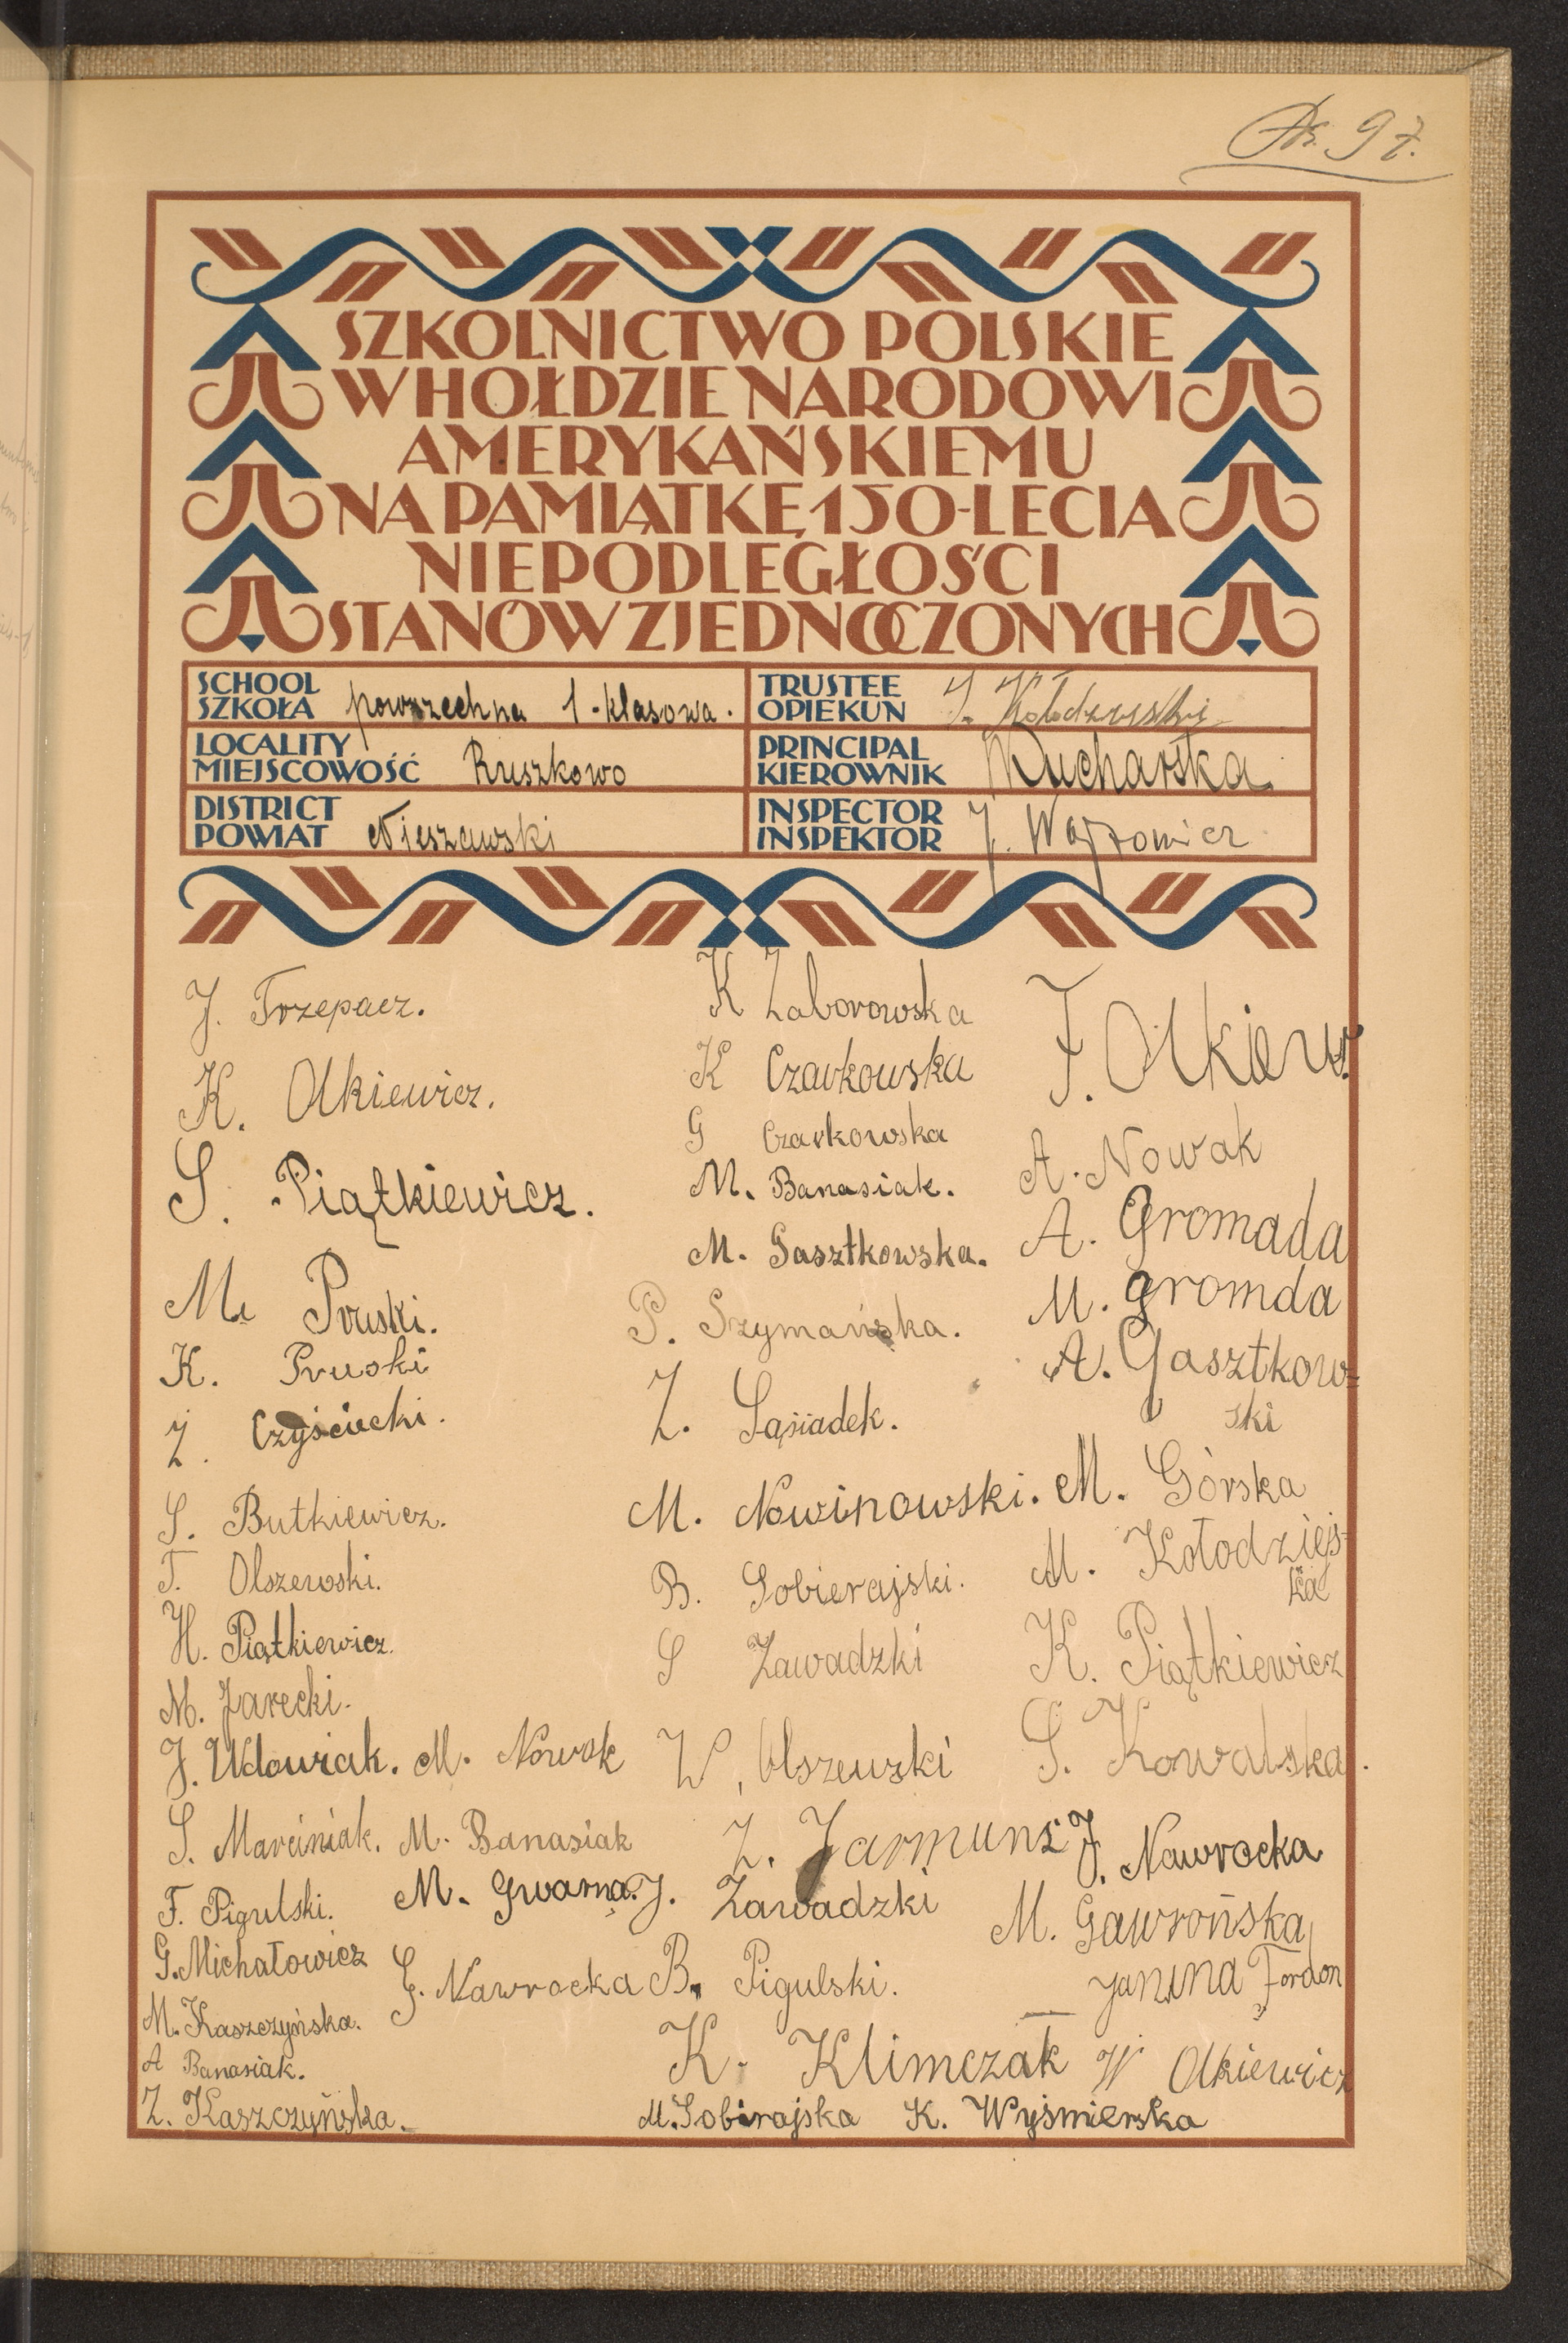 SZKOLNICTWO POLSKIE
W HOŁDZIE NARODOWI
AMERYKAŃSKIEMU
NA PAMIĄTKĘ 150-LECIA
NIEPODLEGŁOŚCI
STANÓW ZJEDNOCZONYCH
SCHOOL
SZKOŁA powszechna 1-klasowa.
TRUSTEE
OPIEKUN
LOCALITY
MIEJSCOWOŚĆ Ruszkowo
PRINCIPAL
KIEROWNIK Kucharska
DISTRICT
POWIAT Nieszawski
INSPECTOR
INSPEKTOR J.
J. Trzepacz.
K. Olkiewicz.
S. Piątkiewicz.
M. Pruski.
K. Pruski
Z. Czyściecki.
S. Butkiewicz.
T. Olszewski.
H. Piątkiewicz.
M. Jarecki.
J. Wdowiak.
S. Marciniak.
F. Pigulski.
G. Michałowicz
M. Kaszczyńska.
A Banasiak.
Z. Kaszczyńska.
M. Nowak
M. Banasiak
M. Gwarna.
G. Nawrocka
K Zaborowska
K Czarkowska
G Czarkowska
M. Banasiak.
M. Gasztkowska.
P. Szymańska.
Z. Sąsiadek.
M. Nowinowski.
B. Sobierajski.
S Zawadzki
W. Olszewski
Z. Jarmunz
J. Zawadzki
B. Pigulski.
K. Klimczak
M. Sobirajska
F. Olkiew.
A. Nowak
A. Gromada
M. gromda
A. Gasztkow=
ski
M. Górska
M. Kołodziejs-
ka
K. Piątkiewicz
S. Kowalska.
J. Nawrocka
M. Gawrońska
Janina Fordon
W Olkiewicz
K. Wyśmierska